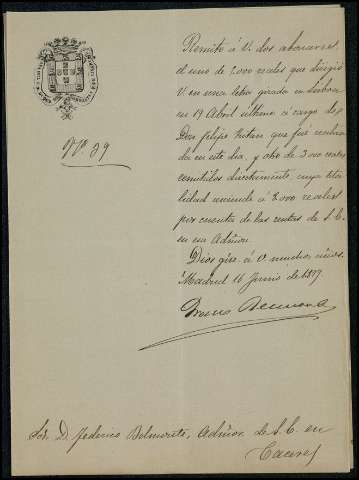 Nº. 39
Remito á V. dos abonares,
el uno de 2.000 reales que dirigió
V en una letra girada en Lisboa
en 19 Abril último á cargo de
Don Felipe que fué
en este dia, y otro de 3.000 reales
remitidos directamente, cuya tota
lidad asciende á reales
por cuenta de las rentas de S. E.
en esa Admon.
Dios gue. á V muchos años.
Madrid 16 Junio de 1877
Sor. D. Federico Belmonte, Admor. de S. E. en
Caceres